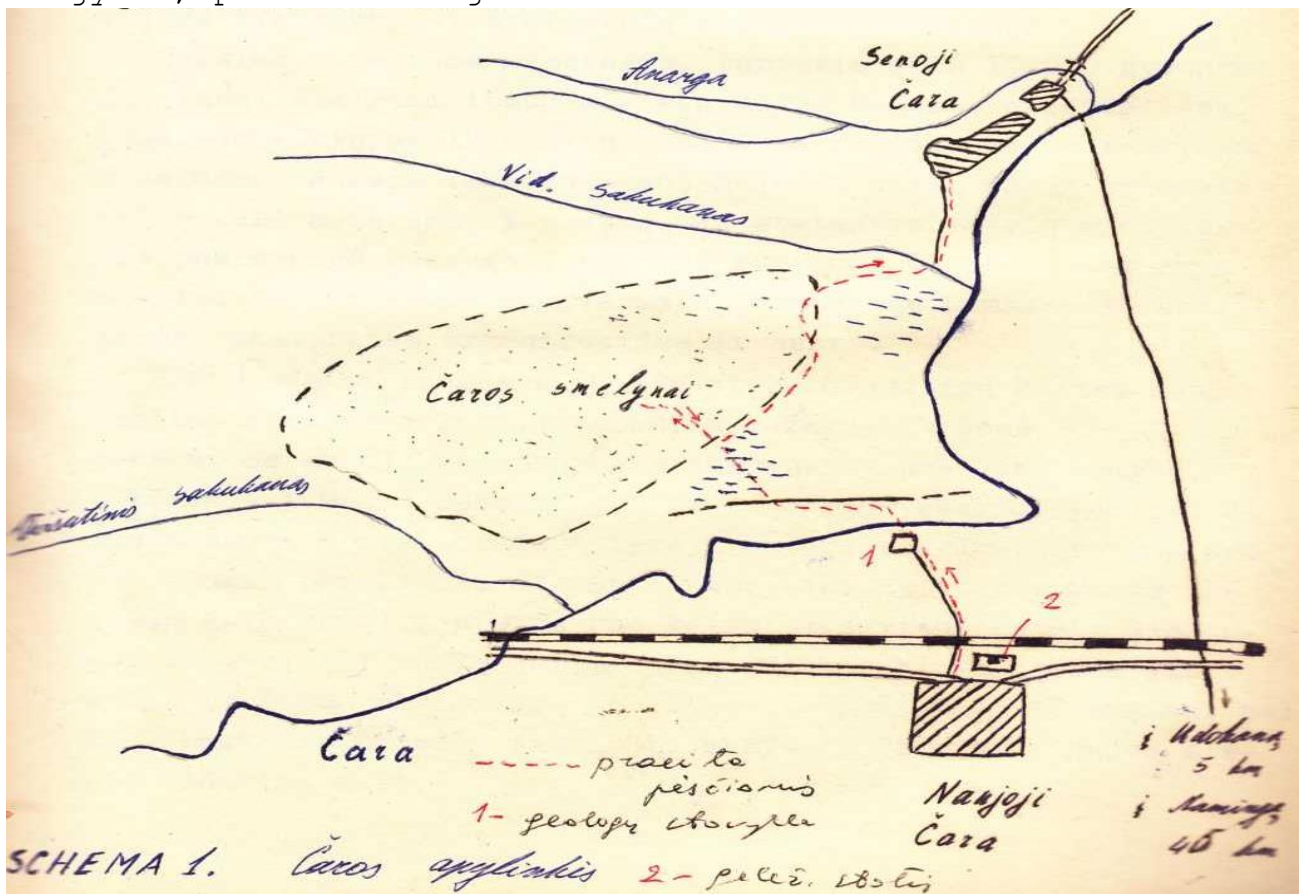 Anarga
Senoji
Čara
Vid. Sakukanas
Čaros smėlynai
Viršutinis Sakukanas
1
2
Čara
praeita
pėsčiomis
1- geologų stovykla
Naujoji
Čara
į Udokaną
5 km
į Namingą
40 km
SCHEMA 1. Čaros apylinkės 2- gelež. stotis